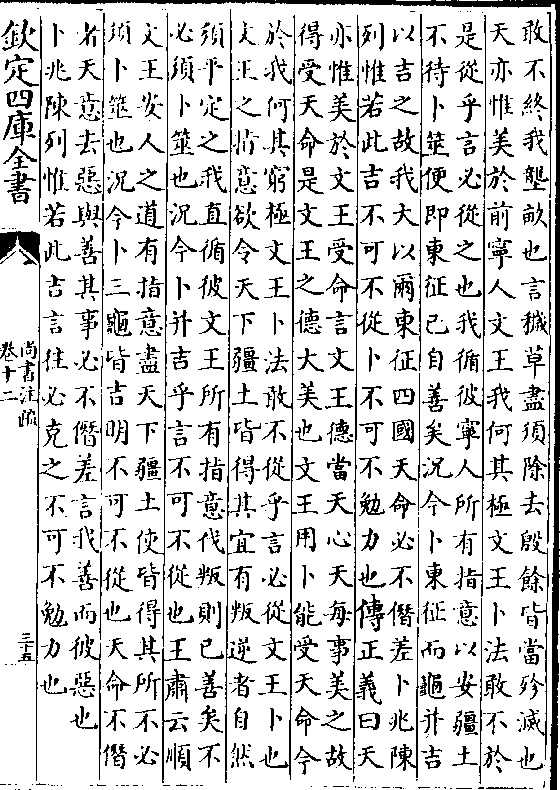 敢不終我壟畝也言穢草盡須除去殷餘皆當殄滅也
天亦惟美於前寧人文王我何其極文王卜法敢不於
是從乎言必從之也我循彼寧人所有指意以安疆土
不待卜筮便即東征已自善矣況今卜東征而龜并吉
以吉之故我大以爾東征四國天命必不僭差卜兆陳
列惟若此吉不可不從卜不可不勉力也傳正義曰天
亦惟美於文王受命言文王德當天心天每事美之故
得受天命是文王之德大美也文王用卜能受天命今
於我何其窮極文王卜法敢不從乎言必從文王卜也
文王之指意欲令天下疆土皆得其宜有叛逆者自然
須平定之我直循彼文王所有指意伐叛則已善矣不
必須卜筮也況今卜并吉乎言不可不從也王肅云順
文王安人之道有指意盡天下疆土使皆得其所不必
須卜筮也況今卜三龜皆吉明不可不從也天命不僭
者天意去惡與善其事必不僭差言我善而彼惡也
卜兆陳列惟若此吉言往必克之不可不勉力也
欽定四庫全書
尚書注疏
卷十二
三十五